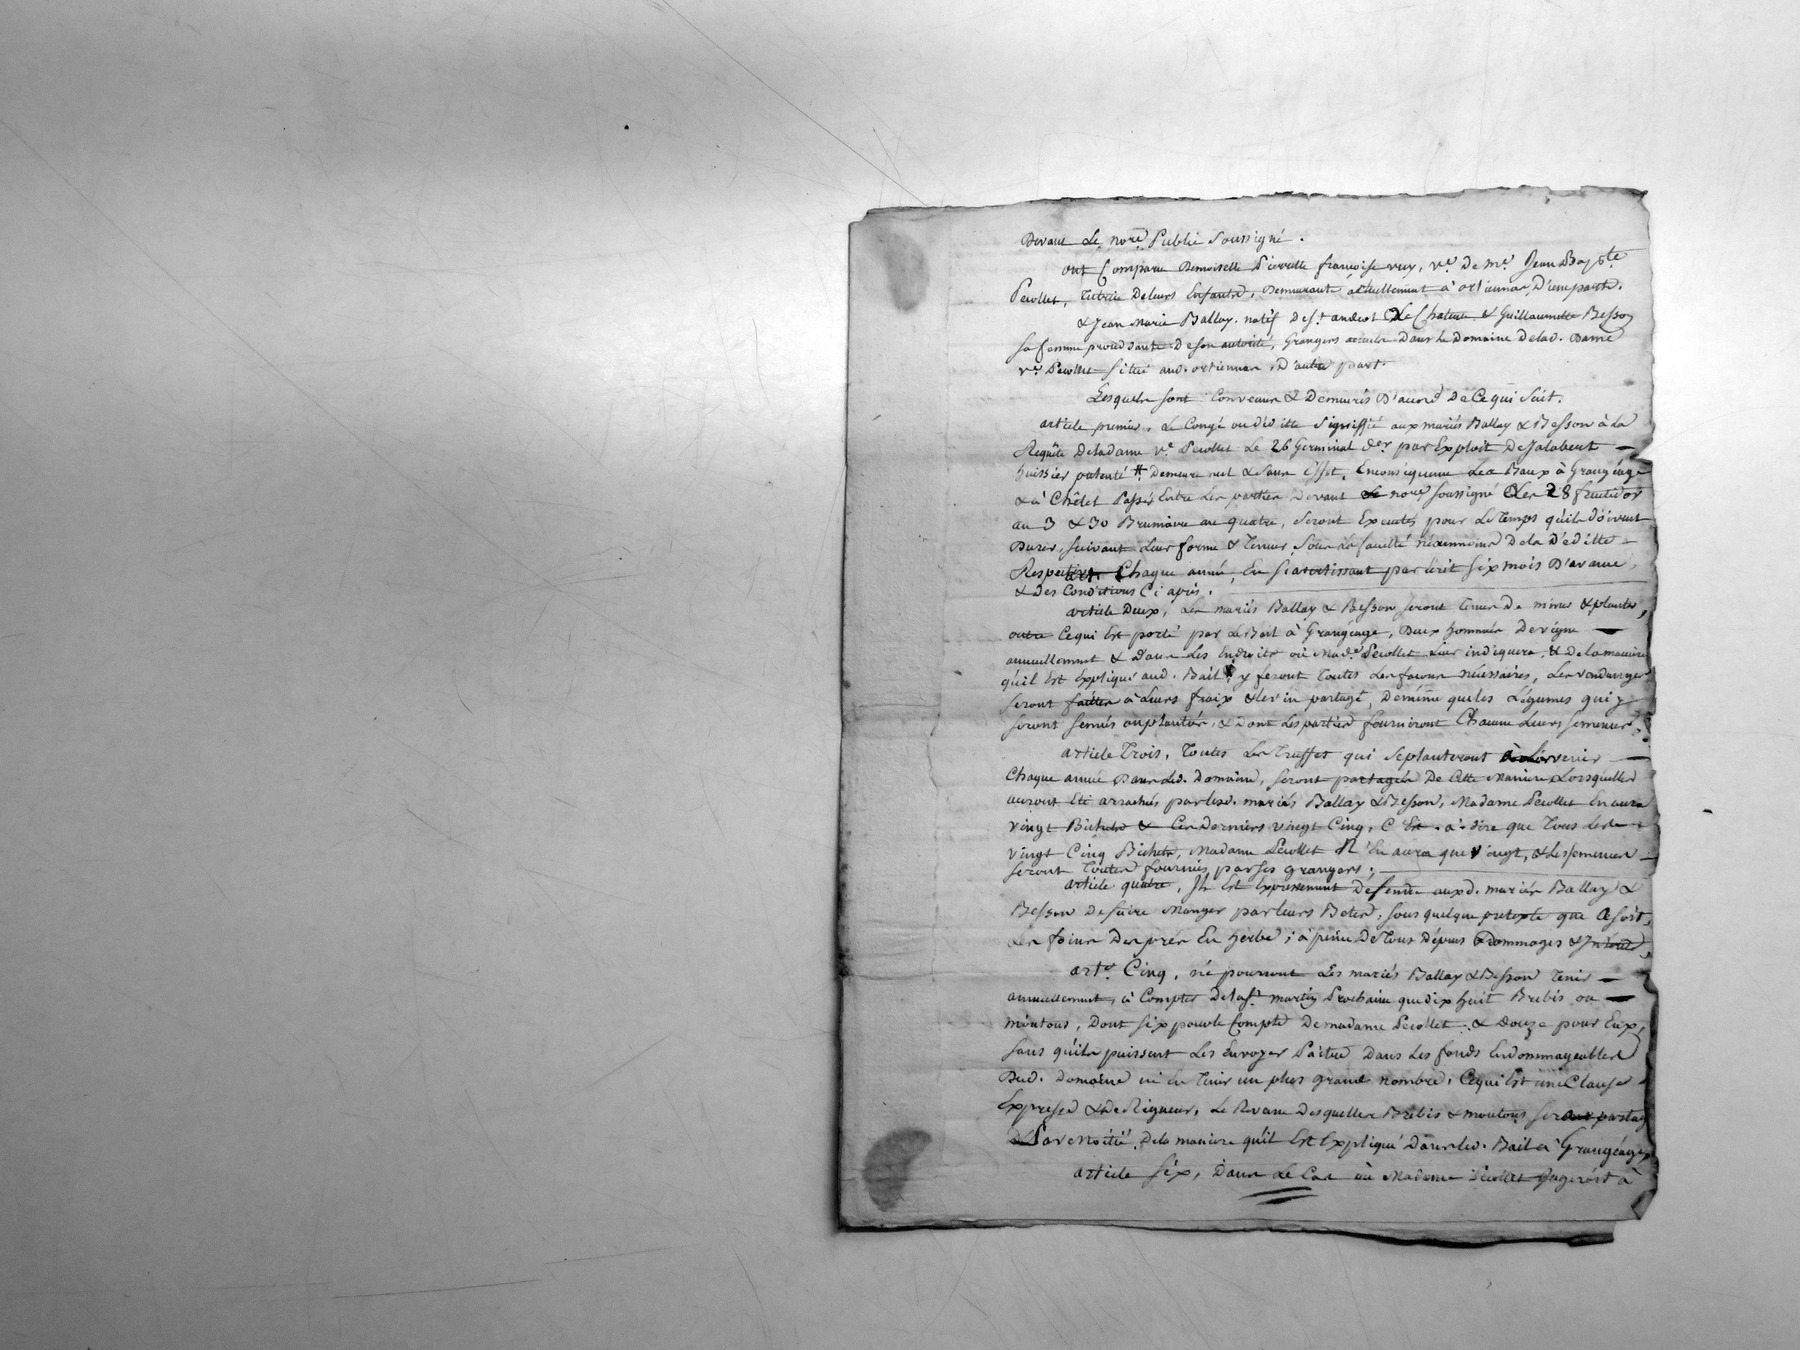 Devant Le no.re Public Soussigné.
ont Comparu Demoiselle Pierrette françoise rey, v.e De m.e Jean Bap.te
Pecollet, Tutrice De leurs Enfants, Demeurante actuellement à ortiennaz, D'une part.
& Jean Marie Ballay natif De s.t andéol Le Chateau & Guillaumette Besson
sa femme procédante De son autorité, Grangers actuels Dans le Domaine De lad. Dame
v.e Pecollet situé aud. ortiennaz, D'autre part.
Lesquels sont Convenus & Demeurés D'accord De Ce qui suit.
article premier, Le Congé ou déditte signiffié aux mariés Ballay & Besson à La
Requête De ladame v.e Pecollet Le 26 Germinal d.er par Exploit De Jalabert
huissier patenté # Demeure nul & sans Effet, En conséquence Les Baux à Grangéage
& à Chêtel Passés Entre Les parties Devant Le no.re soussigné Les 28 fructidor
an 3 & 30 Brumaire an quatre, seront Executés pour Le Temps qu'ils doivent
Durer, suivant Leur forme & Teneur, Sous La faculté néanmoins De la Déditte
Respective Chaque année, En s'avertissant par Ecrit six mois D'avance,
& Des Conditions Ci après.
article Deux, Les mariés Ballay & Besson seront Tenus De miner & planter,
outre Ce qui Est porté par Le Bail à Grangéage, Deux hommées De vigne
annuellement & Dans Les Endroits où Mad.e Pecollet Leur indiquera, & De la maniere
qu'il Est Expliqué aud. Bail, y feront Toutes Les façons nécessaires, Les vendanges
seront faittes à Leurs fraix & le vin partagé, De même que les Légumes qui y
seront semés ou plantés, & Dont Les parties fourniront Chacune Leurs semences.
article Trois, Toutes Les Truffes qui se planteront à L'avenir
Chaque année Dans Led. Domaine, seront partagées De Cette Maniere Lorsqu'elles
auront Eté arrachées par lesd. mariés Ballay & Besson, Madame Pecollet En aura
vingt Bichets & Ces Derniers vingt Cinq, C'Est-à-dire que Tous Les
vingt Cinq Bichets, Madame Pecollet N'En aura que vingt, & Les semences
seront Toutes fournies par ses grangers;
article quatre, Il Est Expressément Defendu auxd. mariés Ballay &
Besson De faire Manger par leurs Betes, sous quelque pretexte que Ce soit,
Les foins Des prés En herbe; à peine De Tous Dépens Dommages & Interets,
art.e Cinq, ne pourront Les mariés Ballay & Besson Tenir
annuellement, à Compter De la s.t martin Prochaine que dix huit Brebis ou
moutons, Dont six pour le Compte De madame Pecollet & Douze pour Eux,
sans qu'ils puissent Les Envoyer Paitre Dans Les fonds Endommageables
Dud. Domaine ni En Tenir un plus grand nombre, Ce qui Est une Clause
Expresse & De Rigueur, Le Revenu Desquelles Brebis & moutons sera partagé
De la maniere qu'il Est Expliqué Dans led. Bail à Grangéage,
article six, Dans Le Cas où Madame Pecollet Jugeroit à